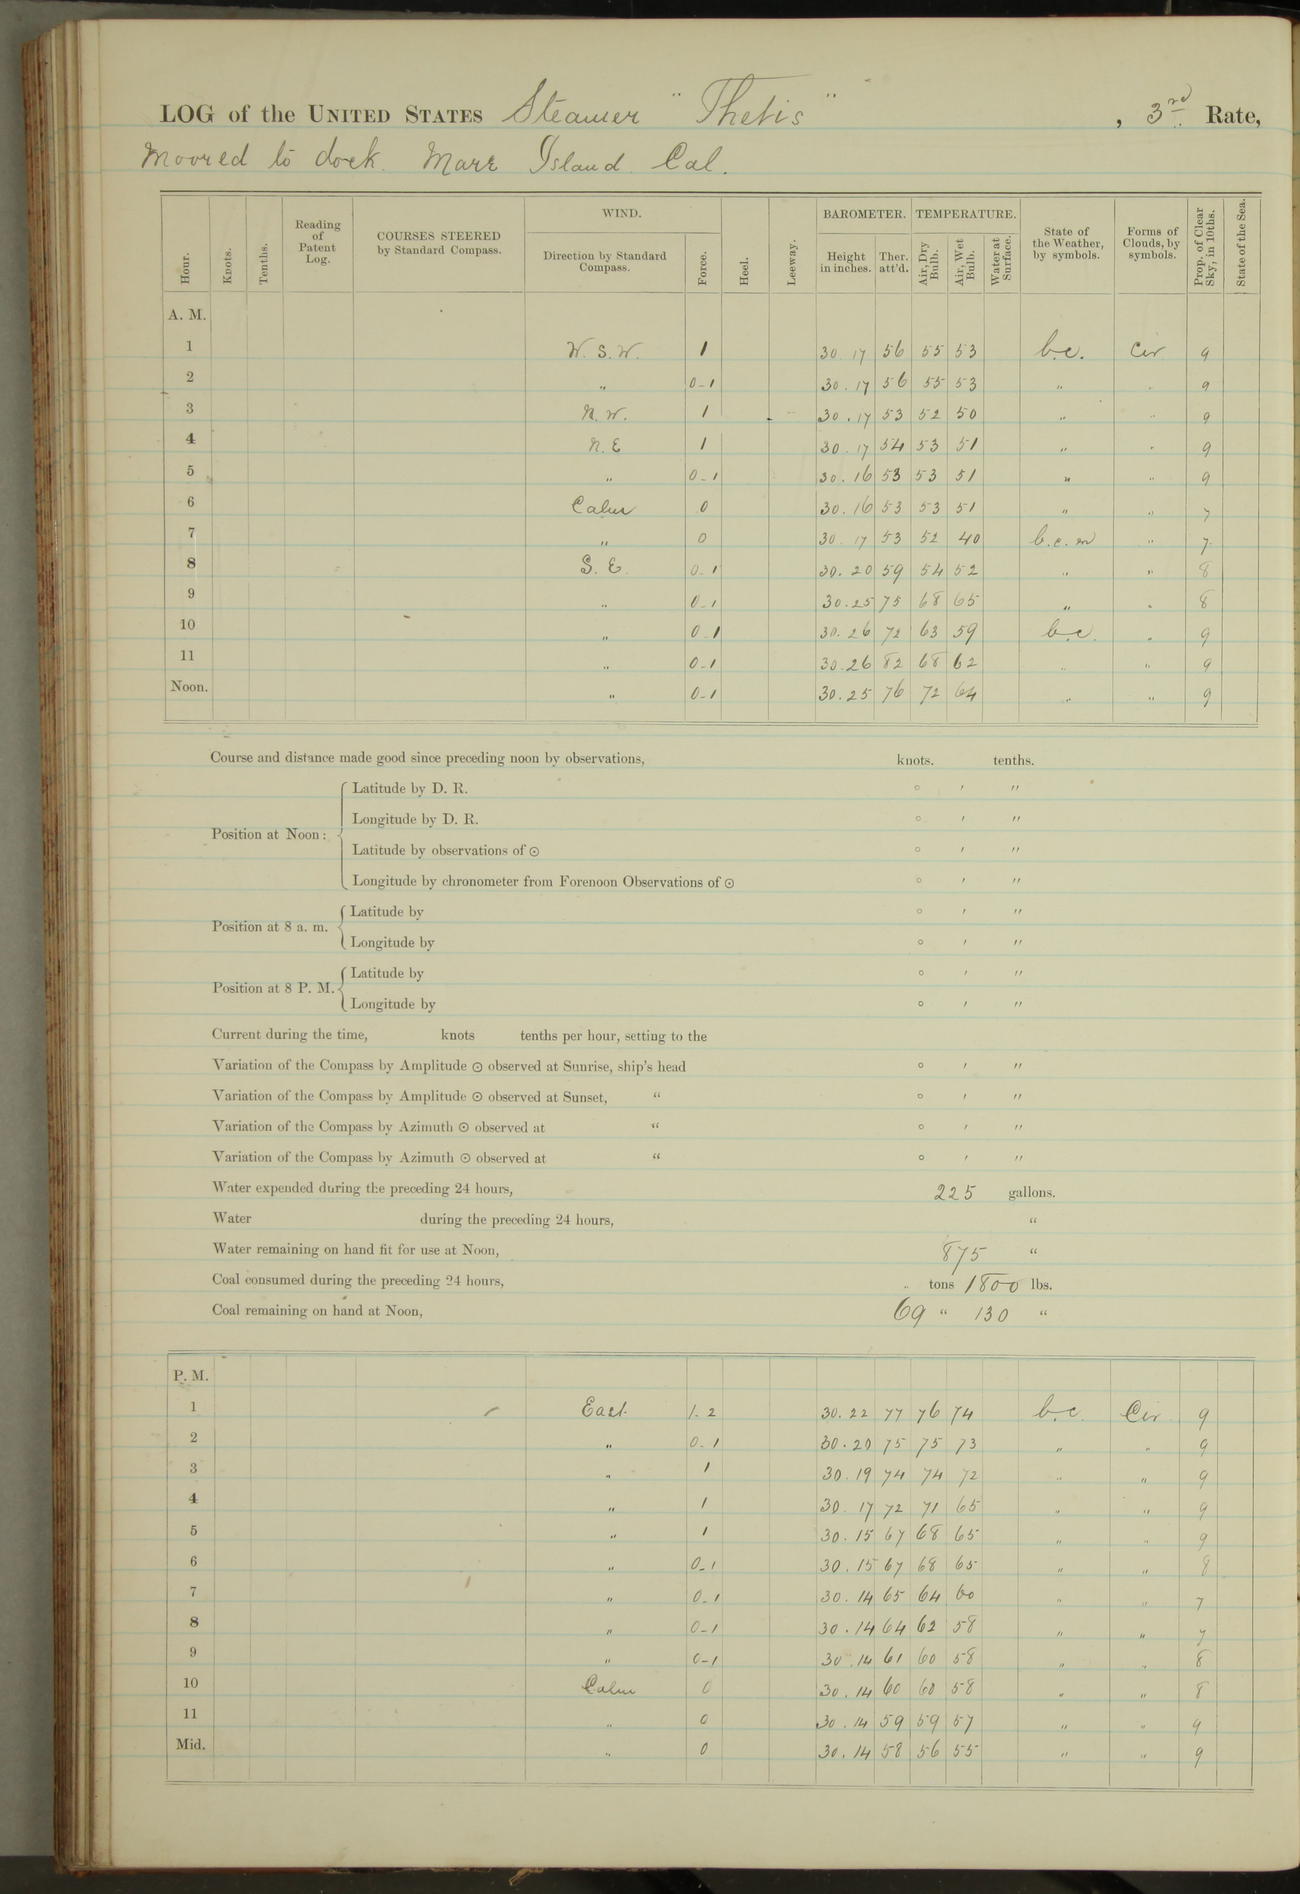 LOG of the UNITED STATES Steamer "Thetis", 3rd Rate,
Moored to dock. Mare Island Cal.
Hour. Knots. Tenths. Reading of Patent Log. COURSES STEERED by Standard Compass. WIND. Direction by Standard Compass. Force. Heel. Leeway. BAROMETER. Height in inches. Ther. att'd. TEMPERATURE. Air, Dry Bulb. Air, Wet Bulb. Water at Surface. State of the Weather, by symbols. Forms of Clouds, by symbols. Prop. of Clear Sky, in 10ths. State of the Sea.
A. M.
1 W. S. W. 1 30.17 56 55 53 b.c. Cir 9
2 " 0-1 30.17 56 55 53 " " 9
3 N. W. 1 30.17 53 52 50 " " 9
4 N. E 1 30.17 54 53 51 " " 9
5 " 0-1 30.16 53 53 51 " " 9
6 Calm 0 30.16 53 53 51 " " 7
7 " 0 30.17 53 52 40 b.c.m " 7
8 S. E. 0-1 30.20 59 54 52 " " 8
9 " 0-1 30.25 75 68 65 " " 8
10 " 0-1 30.26 72 63 59 b.c. " 9
11 " 0-1 30.26 82 68 62 " " 9
Noon. " 0-1 30.25 76 72 64 " " 9
Course and distance made good since preceding noon by observations, knots. tenths.
Position at Noon: Latitude by D. R. ° ' "
Longitude by D. R. ° ' "
Latitude by observations of ☉ ° ' "
Longitude by chronometer from Forenoon Observations of ☉ ° ' "
Position at 8 a. m. Latitude by ° ' "
Longitude by ° ' "
Position at 8 P. M. Latitude by ° ' "
Longitude by ° ' "
Current during the time, knots tenths per hour, setting to the
Variation of the Compass by Amplitude ☉ observed at Sunrise, ship's head ° ' "
Variation of the Compass by Amplitude ☉ observed at Sunset, " ° ' "
Variation of the Compass by Azimuth ☉ observed at " ° ' "
Variation of the Compass by Azimuth ☉ observed at " ° ' "
Water expended during the preceding 24 hours, 225 gallons.
Water during the preceding 24 hours, "
Water remaining on hand fit for use at Noon, 875 "
Coal consumed during the preceding 24 hours, " tons 1800 lbs.
Coal remaining on hand at Noon, 69 " 130 "
P. M.
1 East 1.2 30.22 77 76 74 b.c. Cir 9
2 " 0-1 30.20 75 75 73 " " 9
3 " 1 30.19 74 74 72 " " 9
4 " 1 30.17 72 71 65 " " 9
5 " 1 30.15 67 68 65 " " 9
6 " 0-1 30.15 67 68 65 " " 8
7 " 0-1 30.14 65 64 60 " " 7
8 " 0-1 30.14 64 62 58 " " 7
9 " 0-1 30.14 61 60 58 " " 8
10 Calm 0 30.14 60 60 58 " " 8
11 " 0 30.14 59 59 57 " " 9
Mid. " 0 30.14 58 56 55 " " 9